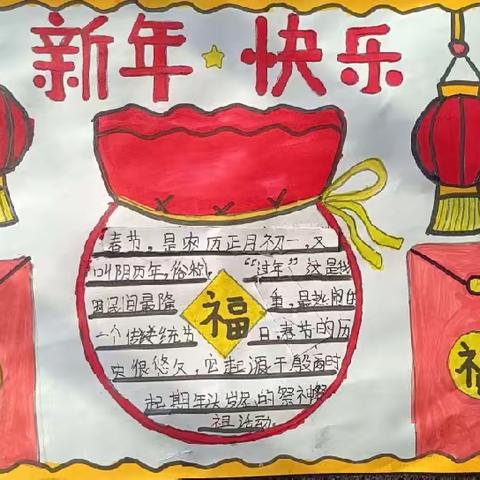 新年快乐
春节,是农历正月初一,又
叫阴历年,俗称 “过年” 这是我
国民间最隆 重,最热闹的
一个传统节 日,春节的历
史很悠久,它起源于殷商时
起期年头岁尾的祭神祭
祖活动.
福
福